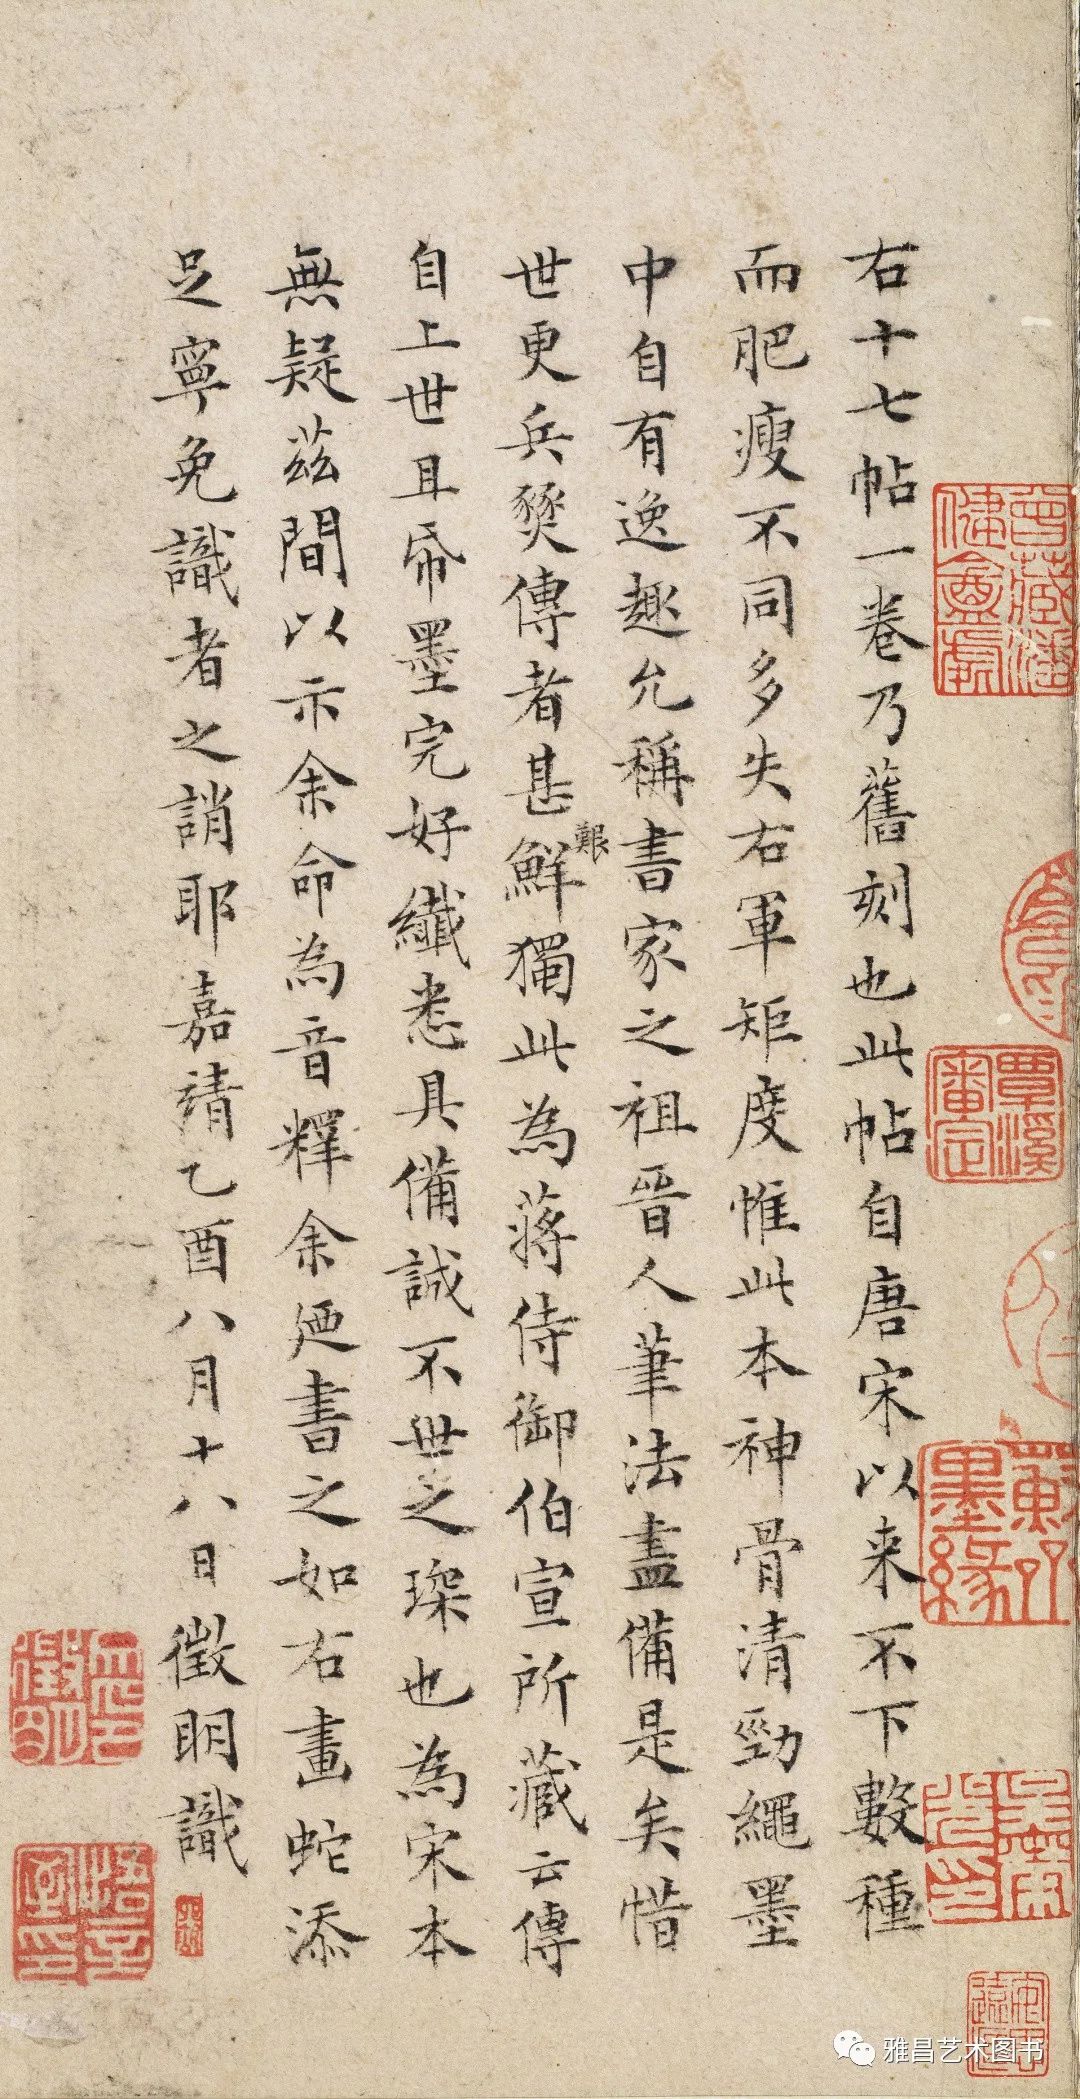 右十七帖一卷乃舊刻也此帖自唐宋以来不下數種
而肥瘦不同多失右軍矩度惟此本神骨清勁繩墨
中自有逸趣允稱書家之祖晉人筆法盡備是矣惜
世更兵燹傳者甚鮮獨此為蒋侍御伯宣所藏云傳
艱
自上世且帋墨完好纖悉具備誠不世之琛也為宋本
無疑茲間以示余命為音釋余廼書之如右畫蛇添
足寧免識者之誚耶嘉靖乙酉八月十八日徵明識
曾藏潘健盦處
覃溪審定
蘇齋墨緣
徵明
悟言室印
雅昌艺术图书